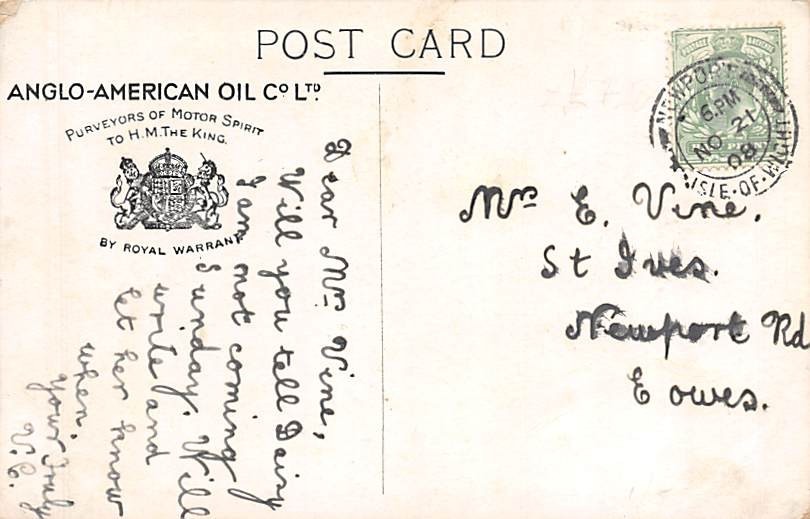 POST CARD
ANGLO-AMERICAN OIL Cº LTD.
PURVEYORS OF MOTOR SPIRIT
TO H.M. THE KING.
BY ROYAL WARRANT
Dear Mrs Vine,
Will you tell Daisy
I am not coming
Sunday. Will
write and
let her know
when.
Yours truly
V.C.
NEWPORT
6.PM
NO 21
08
ISLE.OF.WIGHT
Mrs E. Vine.
St Ives.
Newport Rd
Cowes.